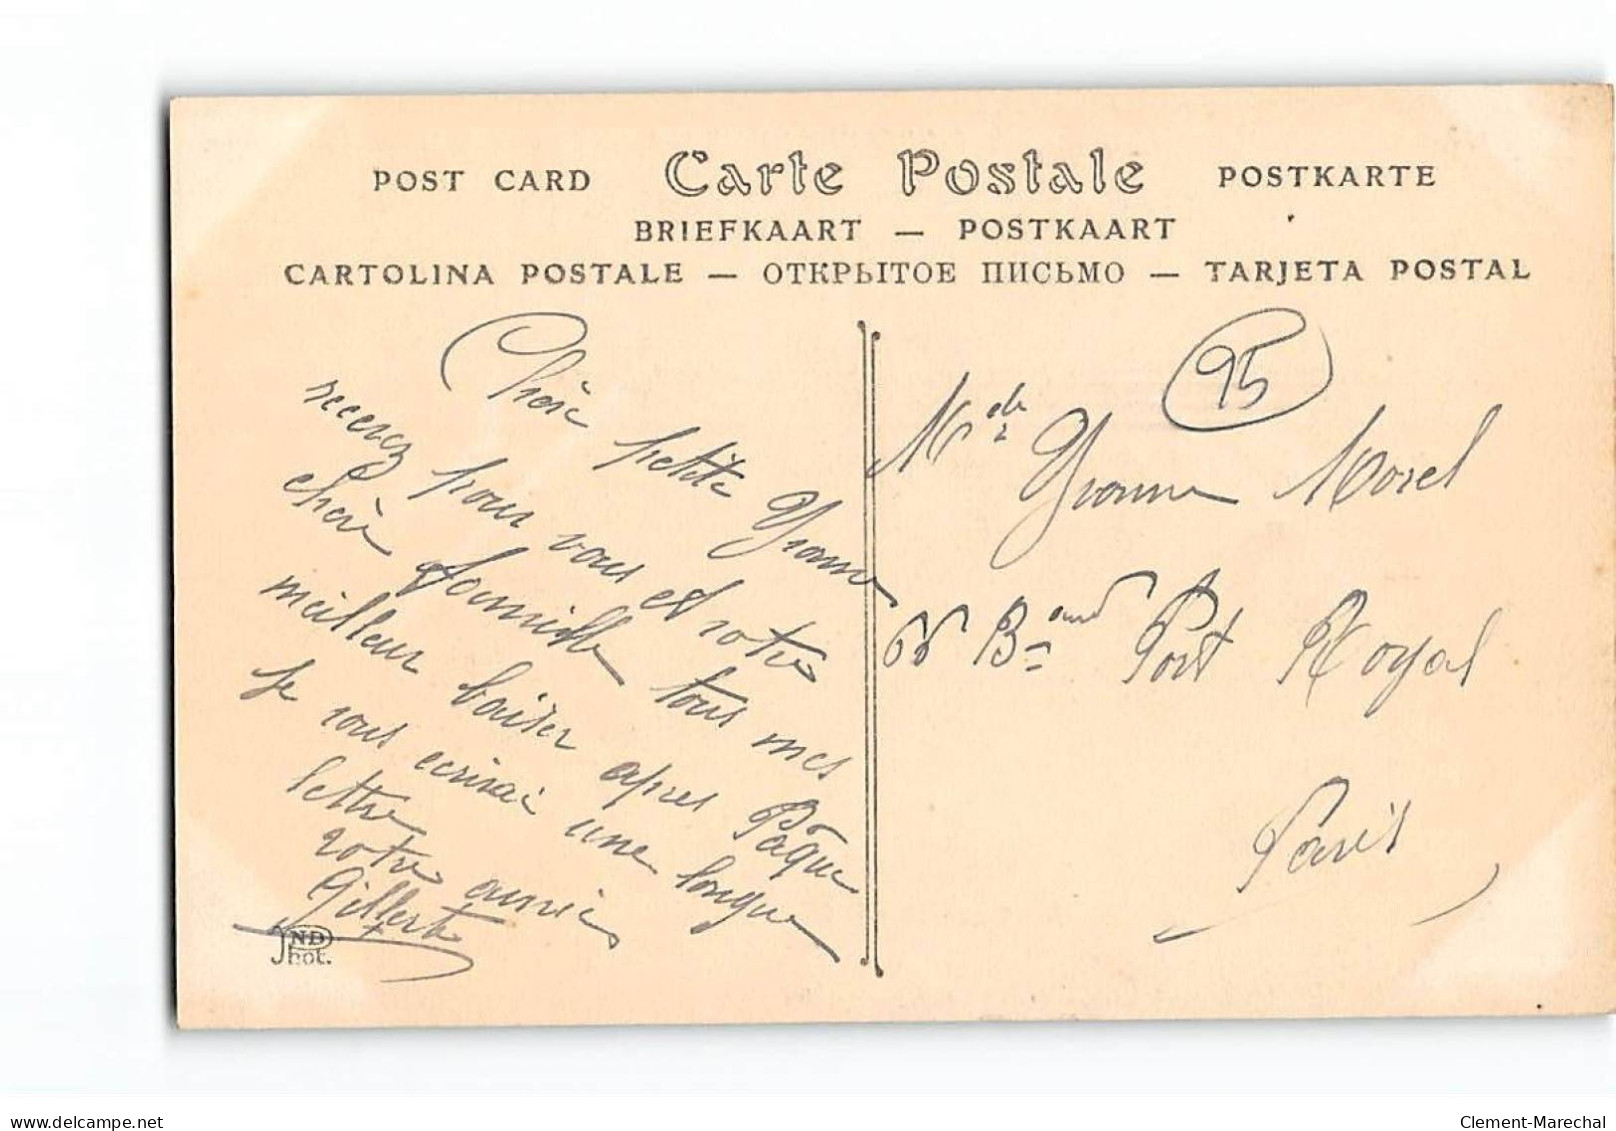 POST CARD Carte Postale POSTKARTE
BRIEFKAART — POSTKAART
CARTOLINA POSTALE — ОТКРЫТОЕ ПИСЬМО — TARJETA POSTAL
Chère petite Yvonne
recevez pour vous et votre
chère famille tous mes
meilleur baiser apres Pâque
je vous ecrirai une longue
lettre
votre amie
Gilberte
ND
Phot.
95
Melle Yvonne Morel
66 Bard Port Royal
Paris
delcampe.net
Clement-Marechal